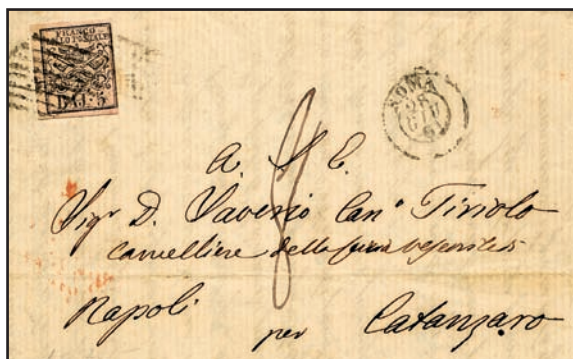 FRANCO
BOLLO POSTALE
BAJ: 5
ROMA
GIU
61
8
A. S. E.
Sigr D. Saverio Can.o Tiriolo
Cancelliere della Curia Vescovile di
Napoli
per Catanzaro